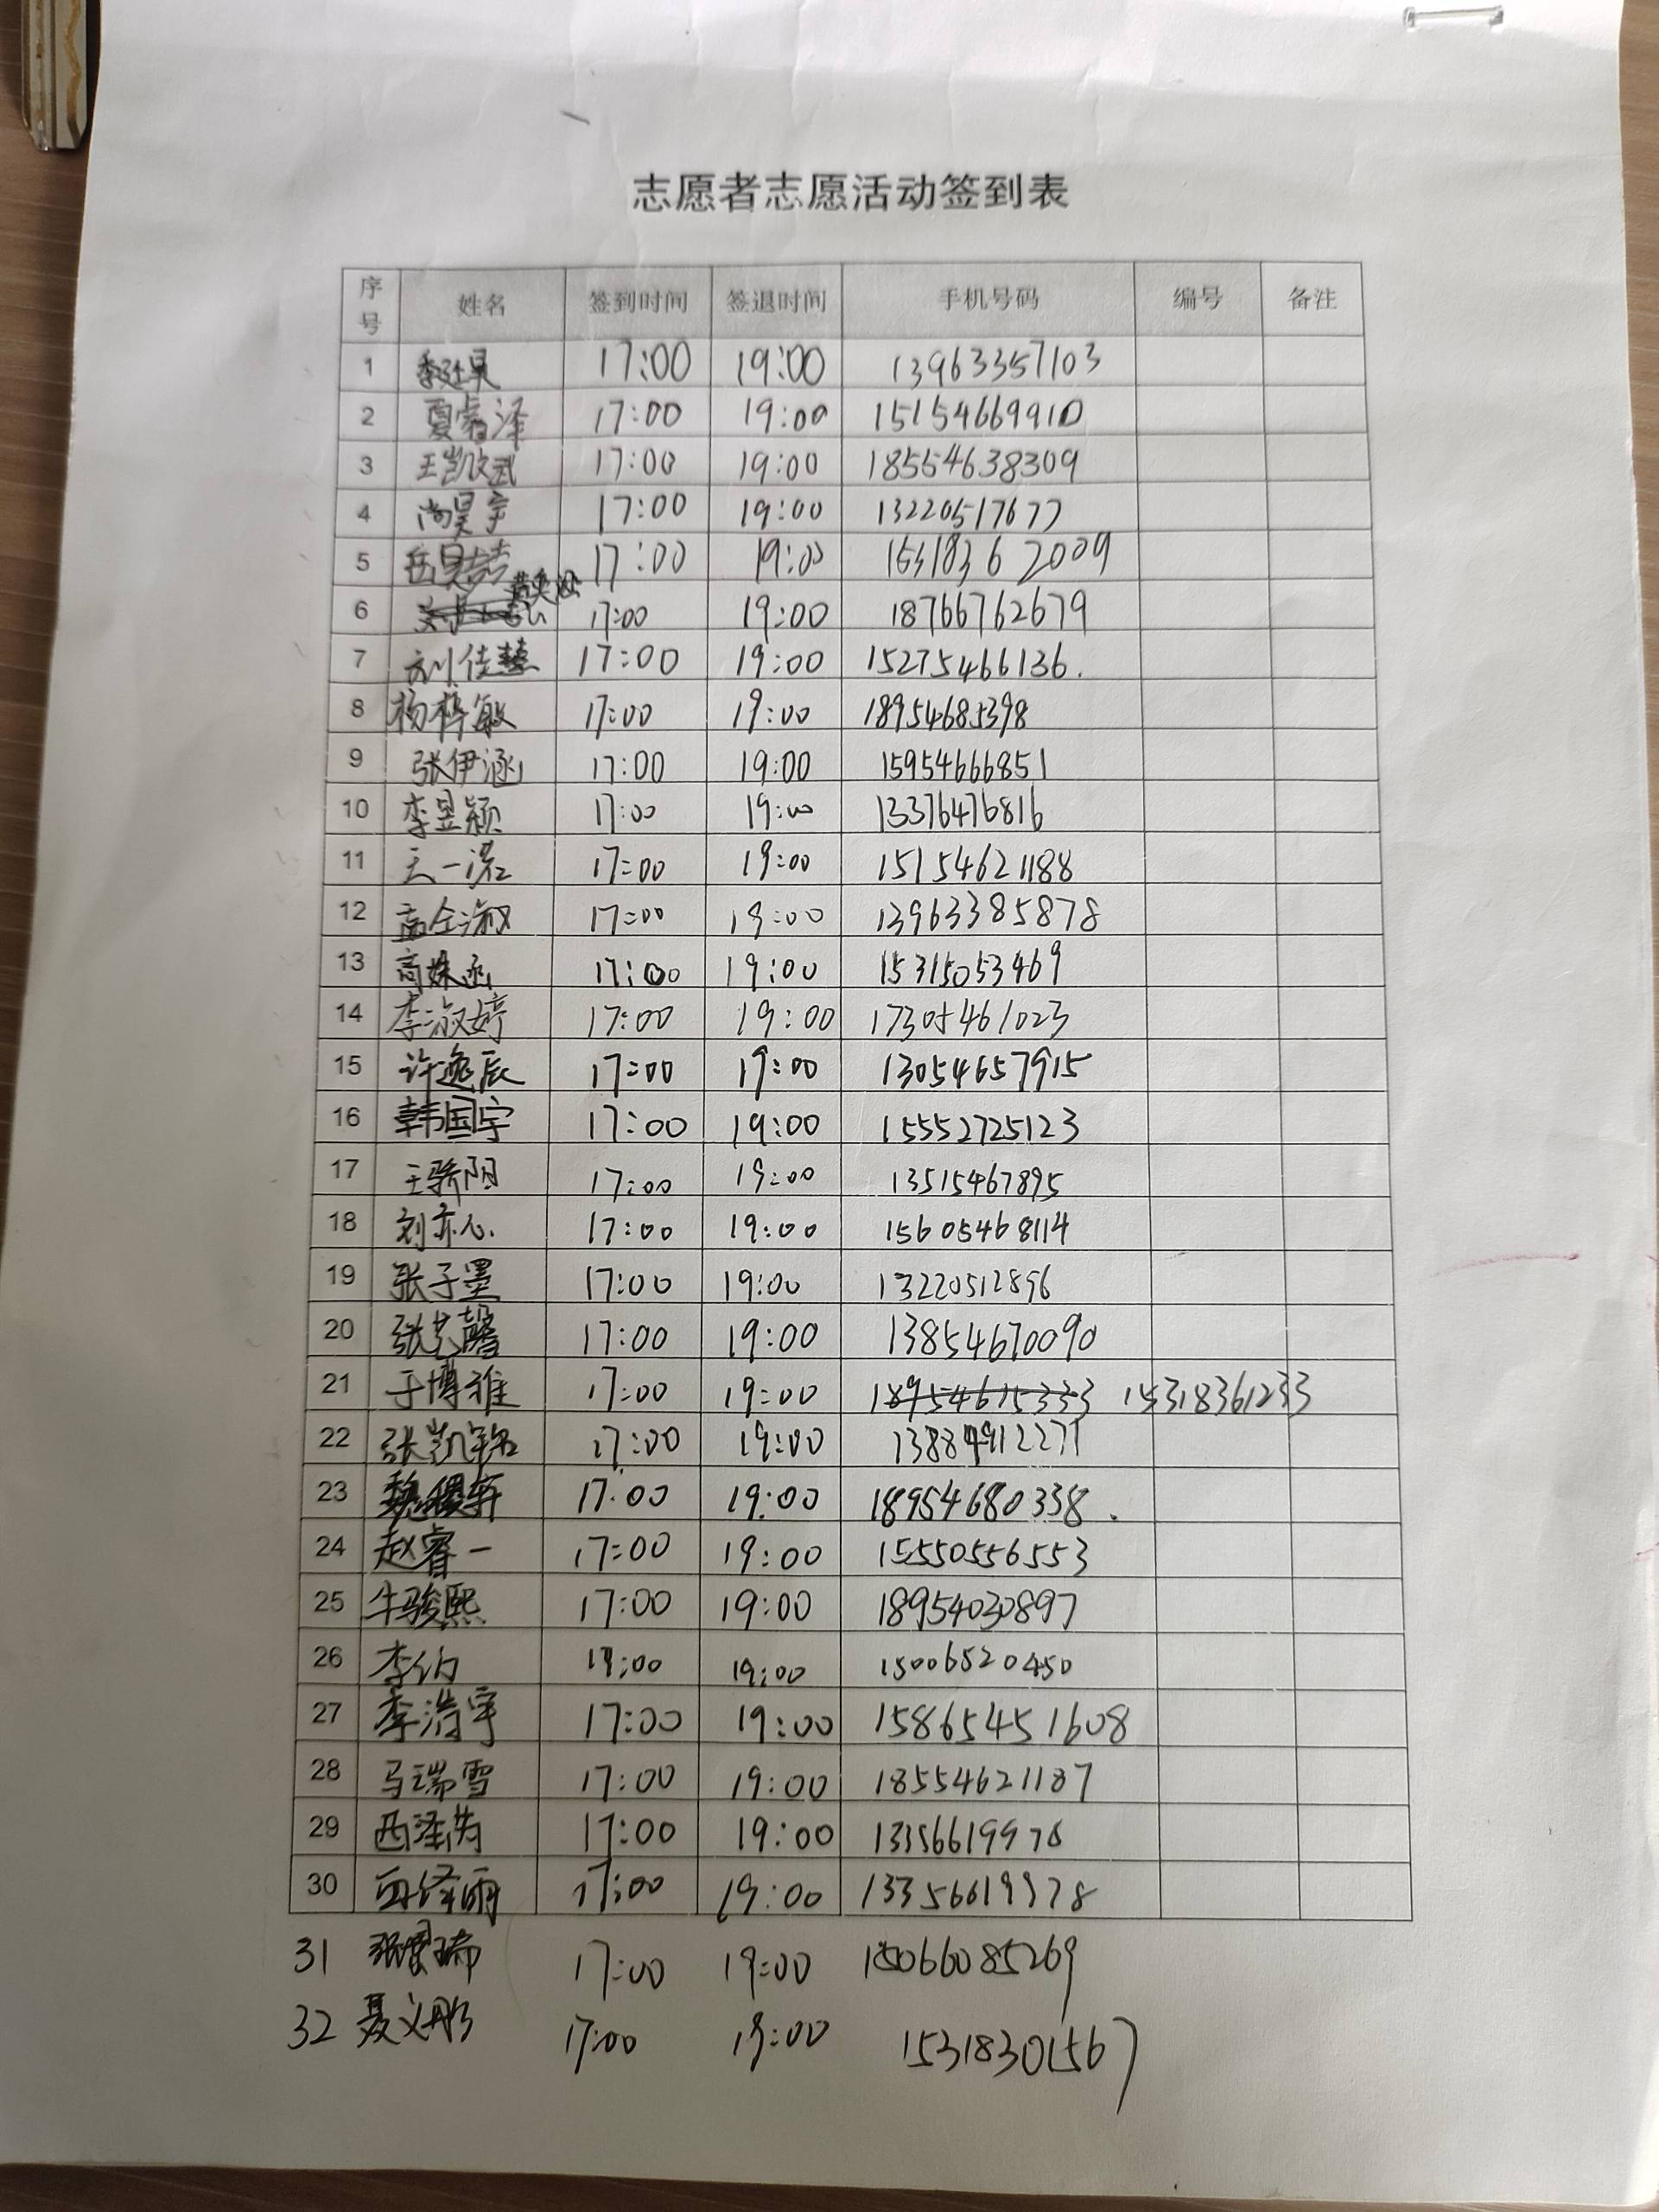 志愿者志愿活动签到表
序号 姓名 签到时间 签退时间 手机号码 编号 备注
1 17:00 19:00 13963357103
2 夏睿泽 17:00 19:00 15154669910
3 王凯文武 17:00 19:00 18554638309
4 尚昊宇 17:00 19:00 13220517677
5 岳昊喆 17:00 19:00 15318362009
6 17:00 19:00 18766762679
7 刘佳慧 17:00 19:00 15275466136.
8 杨梓敏 17:00 19:00 18954685398
9 张伊涵 17:00 19:00 15954666851
10 李昱颖 17:00 19:00 13376476816
11 王一诺 17:00 19:00 15154621188
12 孟全淑 17:00 19:00 13963385878
13 高姝函 17:00 19:00 15315053469
14 李淑婷 17:00 19:00 17305461023
15 许逸辰 17:00 19:00 13054657915
16 韩国宇 17:00 19:00 15552725123
17 王骄阳 17:00 19:00 13515467895
18 刘亦心 17:00 19:00 15605468114
19 张子墨 17:00 19:00 13220512896
20 张艺馨 17:00 19:00 13854670090
21 于博雅 17:00 19:00 18954675333 15318361233
22 张凯铭 17:00 19:00 13884912271
23 17:00 19:00 18954680338.
24 赵睿一 17:00 19:00 15550556553
25 牛骏熙 17:00 19:00 18954030897
26 李 19:00 15006520450
27 李浩宇 17:00 19:00 15865451608
28 马瑞雪 17:00 19:00 18554621187
29 西泽芮 17:00 19:00 13356619978
30 西泽雨 17:00 19:00 13356619978
31 17:00 19:00 15066085269
32 聂义彤 17:00 19:00 15318301567